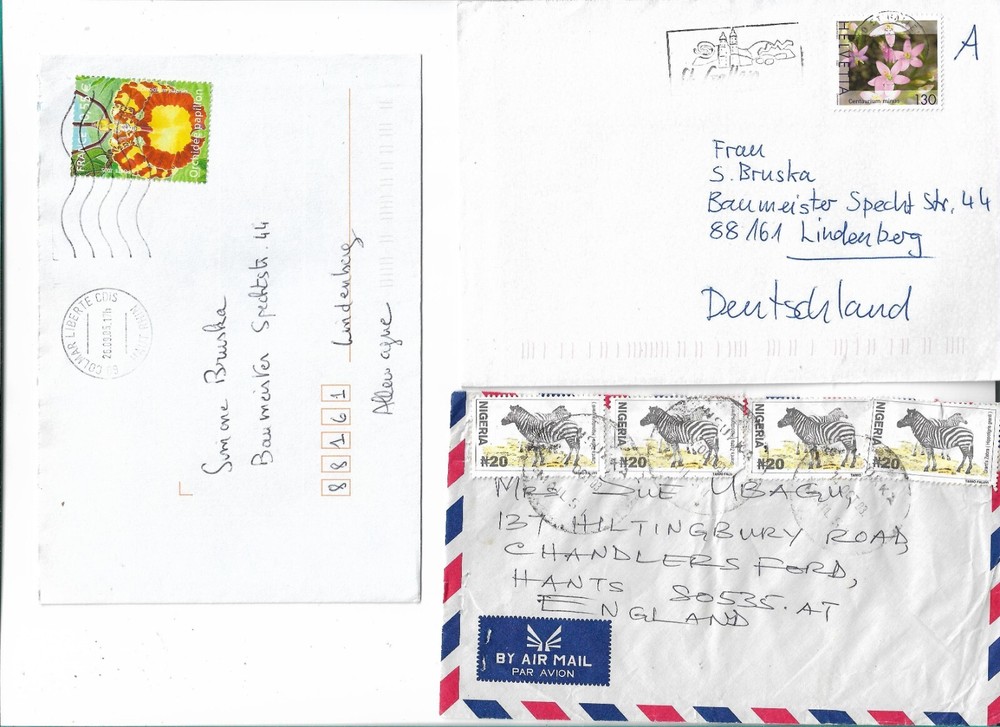 FRANCE
Orchidée papillon
COLMAR LIBERTE CDIS
HAUT RHIN
Simone Bruska
Baumeister Spechtstr. 44
88161 Lindenberg
Allemagne
St. Gallen
HELVETIA
Centaurium minus
130
A
Frau
S. Bruska
Baumeister Specht Str. 44
88161 Lindenberg
Deutschland
NIGERIA
₦20
₦20
₦20
₦20
MRS. SUE UBAGU,
137 HILTINGBURY ROAD,
CHANDLERS FORD,
HANTS SO535.AT
ENGLAND
BY AIR MAIL
PAR AVION